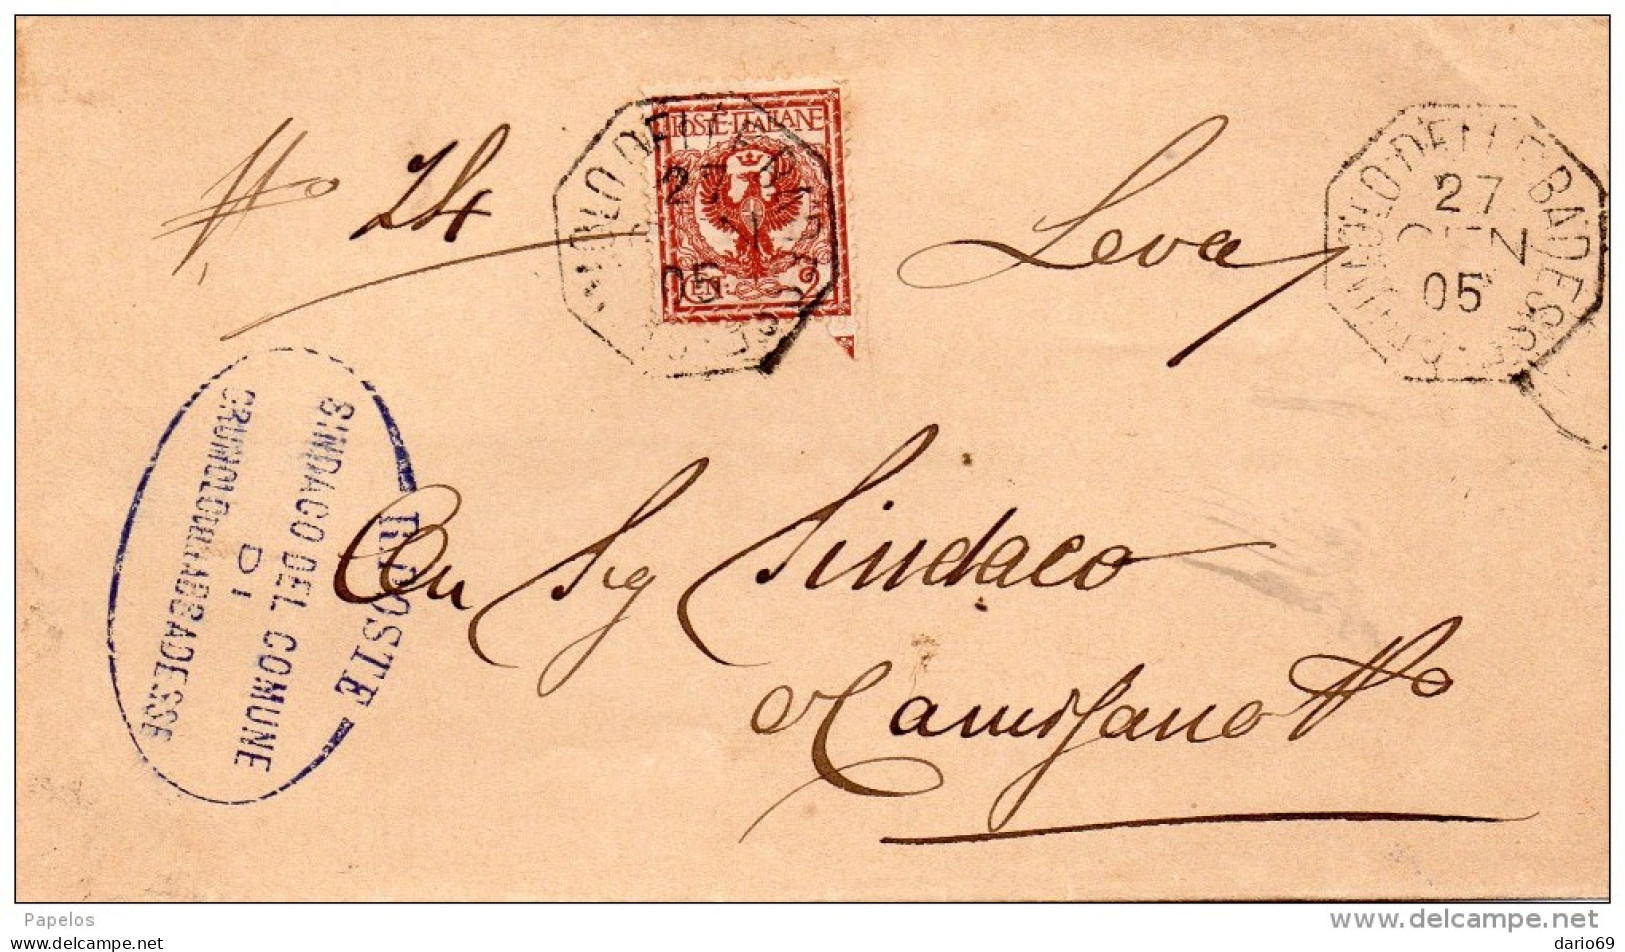 N° 24
Leva
POSTE·ITALIANE
27
05
CEN:
DELLE BADESSE
27
GEN
05
R. POSTE
SINDACO DEL COMUNE
DI
GRUMOLO DELLE ABBADESSE
Al Sig Sindaco
Camisano Vo
Papelos
www.delcampe.net
dario69